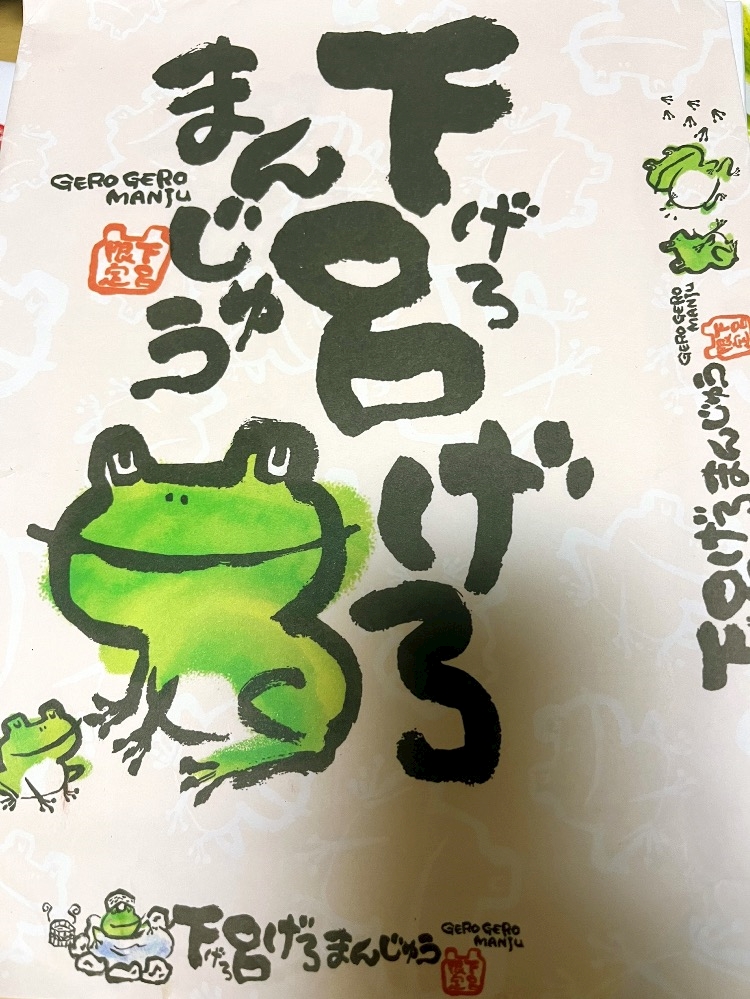 下呂
げろ
げろ
まんじゅう
GERO GERO
MANJU
下呂
限定
GERO GERO
MANJU
下呂
限定
下呂げろまんじゅう
下呂げろまんじゅう
げろ
GERO GERO
MANJU
下呂
限定